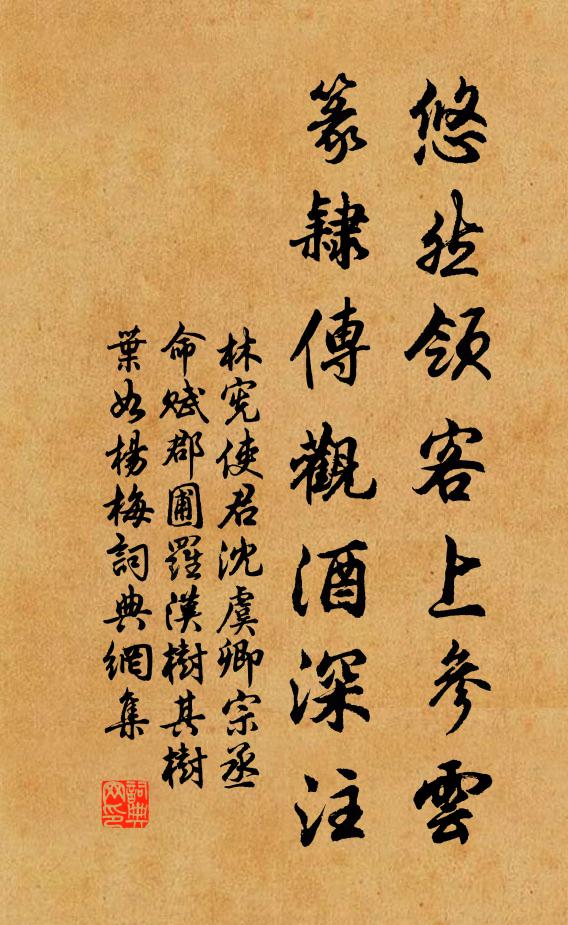 悠然領客上參雲
篆隸傳觀酒深注
林宪使君沈虞卿宗丞
命賦郡圃羅漢樹其樹
葉如楊梅詞典網集
詞典
网印